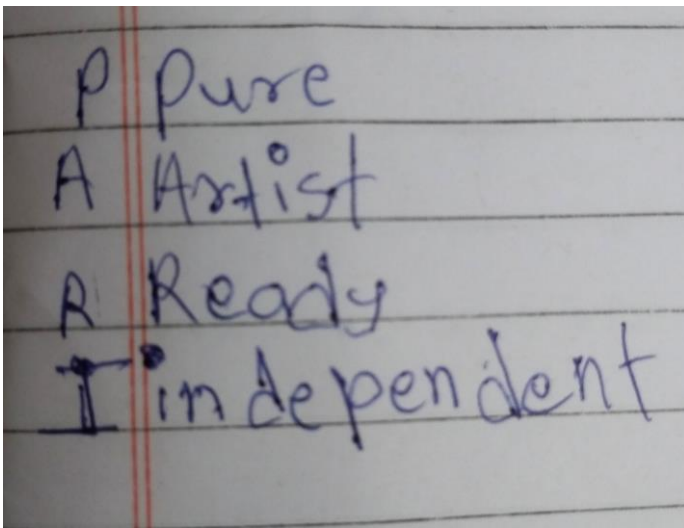 P Pure
A Artist
R Ready
I independent